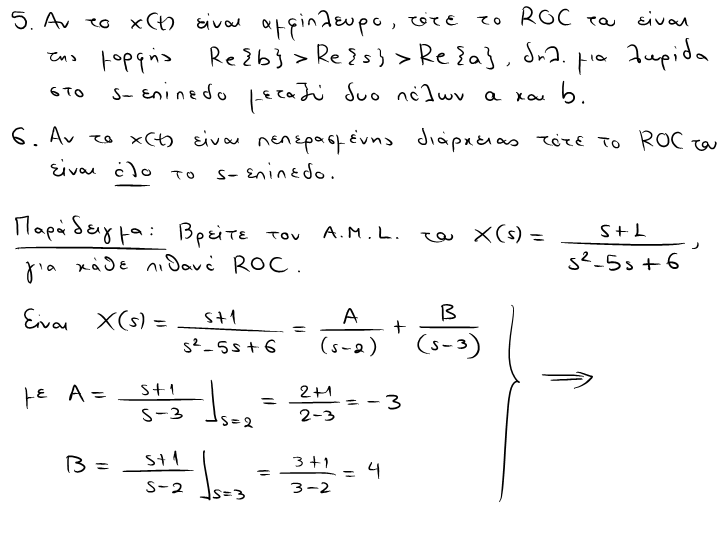 5. Αν το x(t) είναι αμφίπλευρο, τότε το ROC του είναι
της μορφής Re{b} > Re{s} > Re{a}, δηλ. μια λωρίδα
στο s-επίπεδο μεταξύ δυο πόλων a και b.
6. Αν το x(t) είναι πεπερασμένης διάρκειας τότε το ROC του
είναι όλο το s-επίπεδο.
Παράδειγμα: Βρείτε τον Α.Μ.L. του X(s) = (s+1)/(s²-5s+6),
για κάθε πιθανό ROC.
Είναι X(s) = (s+1)/(s²-5s+6) = A/(s-2) + B/(s-3)
με A = (s+1)/(s-3) |s=2 = (2+1)/(2-3) = -3 ⟹
B = (s+1)/(s-2) |s=3 = (3+1)/(3-2) = 4